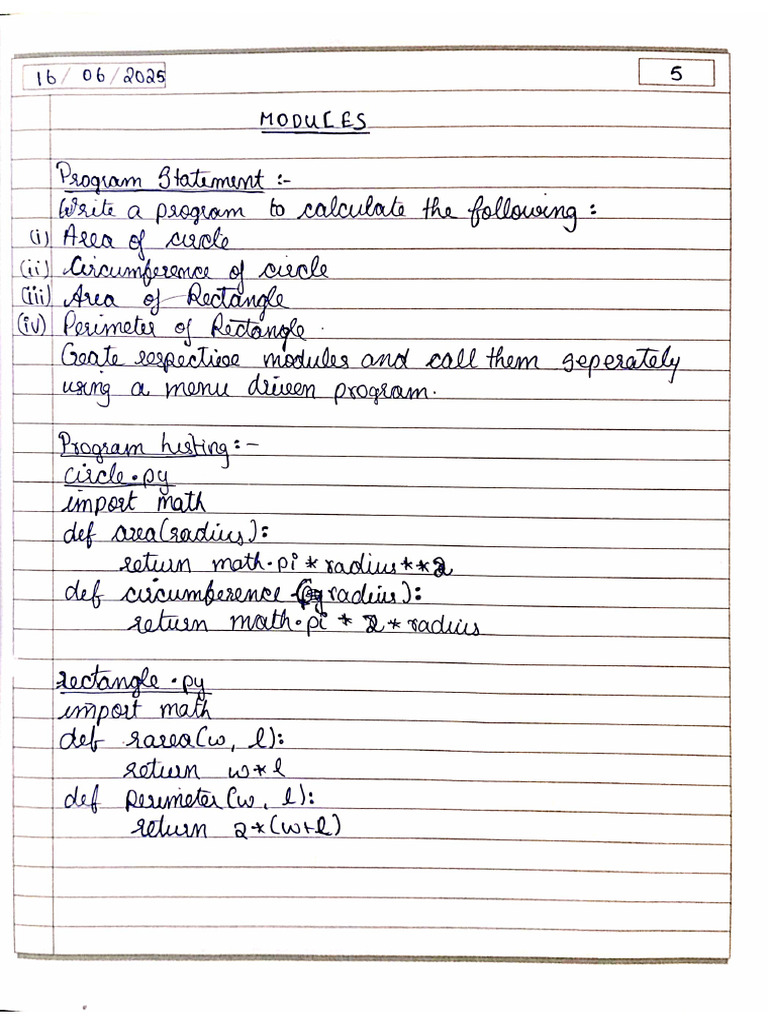 16/06/2025
5
MODULES
Program Statement :-
Write a program to calculate the following :
(i) Area of circle
(ii) Circumference of circle
(iii) Area of Rectangle
(iv) Perimeter of Rectangle.
Create respective modules and call them seperately
using a menu driven program.
Program listing :-
circle.py
import math
def area(radius):
return math.pi*radius**2
def circumference (radius):
return math.pi * 2 * radius
rectangle.py
import math
def rarea(w, l):
return w*l
def perimeter(w, l):
return 2*(w+l)